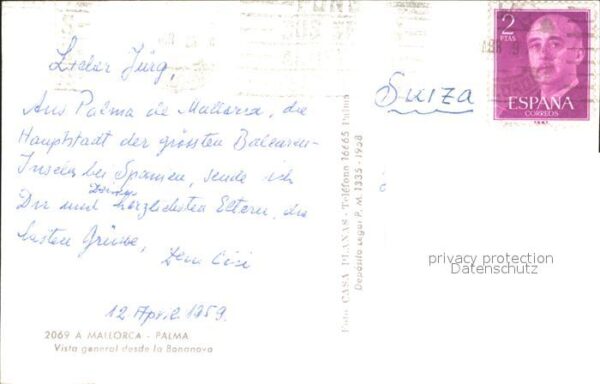 Lieber Jürg,
Aus Palma de Mallorca, die
Hauptstadt der grössten Balearen-
Inseln bei Spanien, sende ich
Dir und herzlichsten Eltern, die
besten Grüsse,
Dein
12 April 1959.
2069 A MALLORCA - PALMA
Vista general desde la Bonanova
Foto CASA PLANAS - Teléfono 16665 Palma
Depósito Legal P. M. 1335 - 1958
SUIZA
2
PTAS
ESPAÑA
CORREOS
privacy protection
Datenschutz